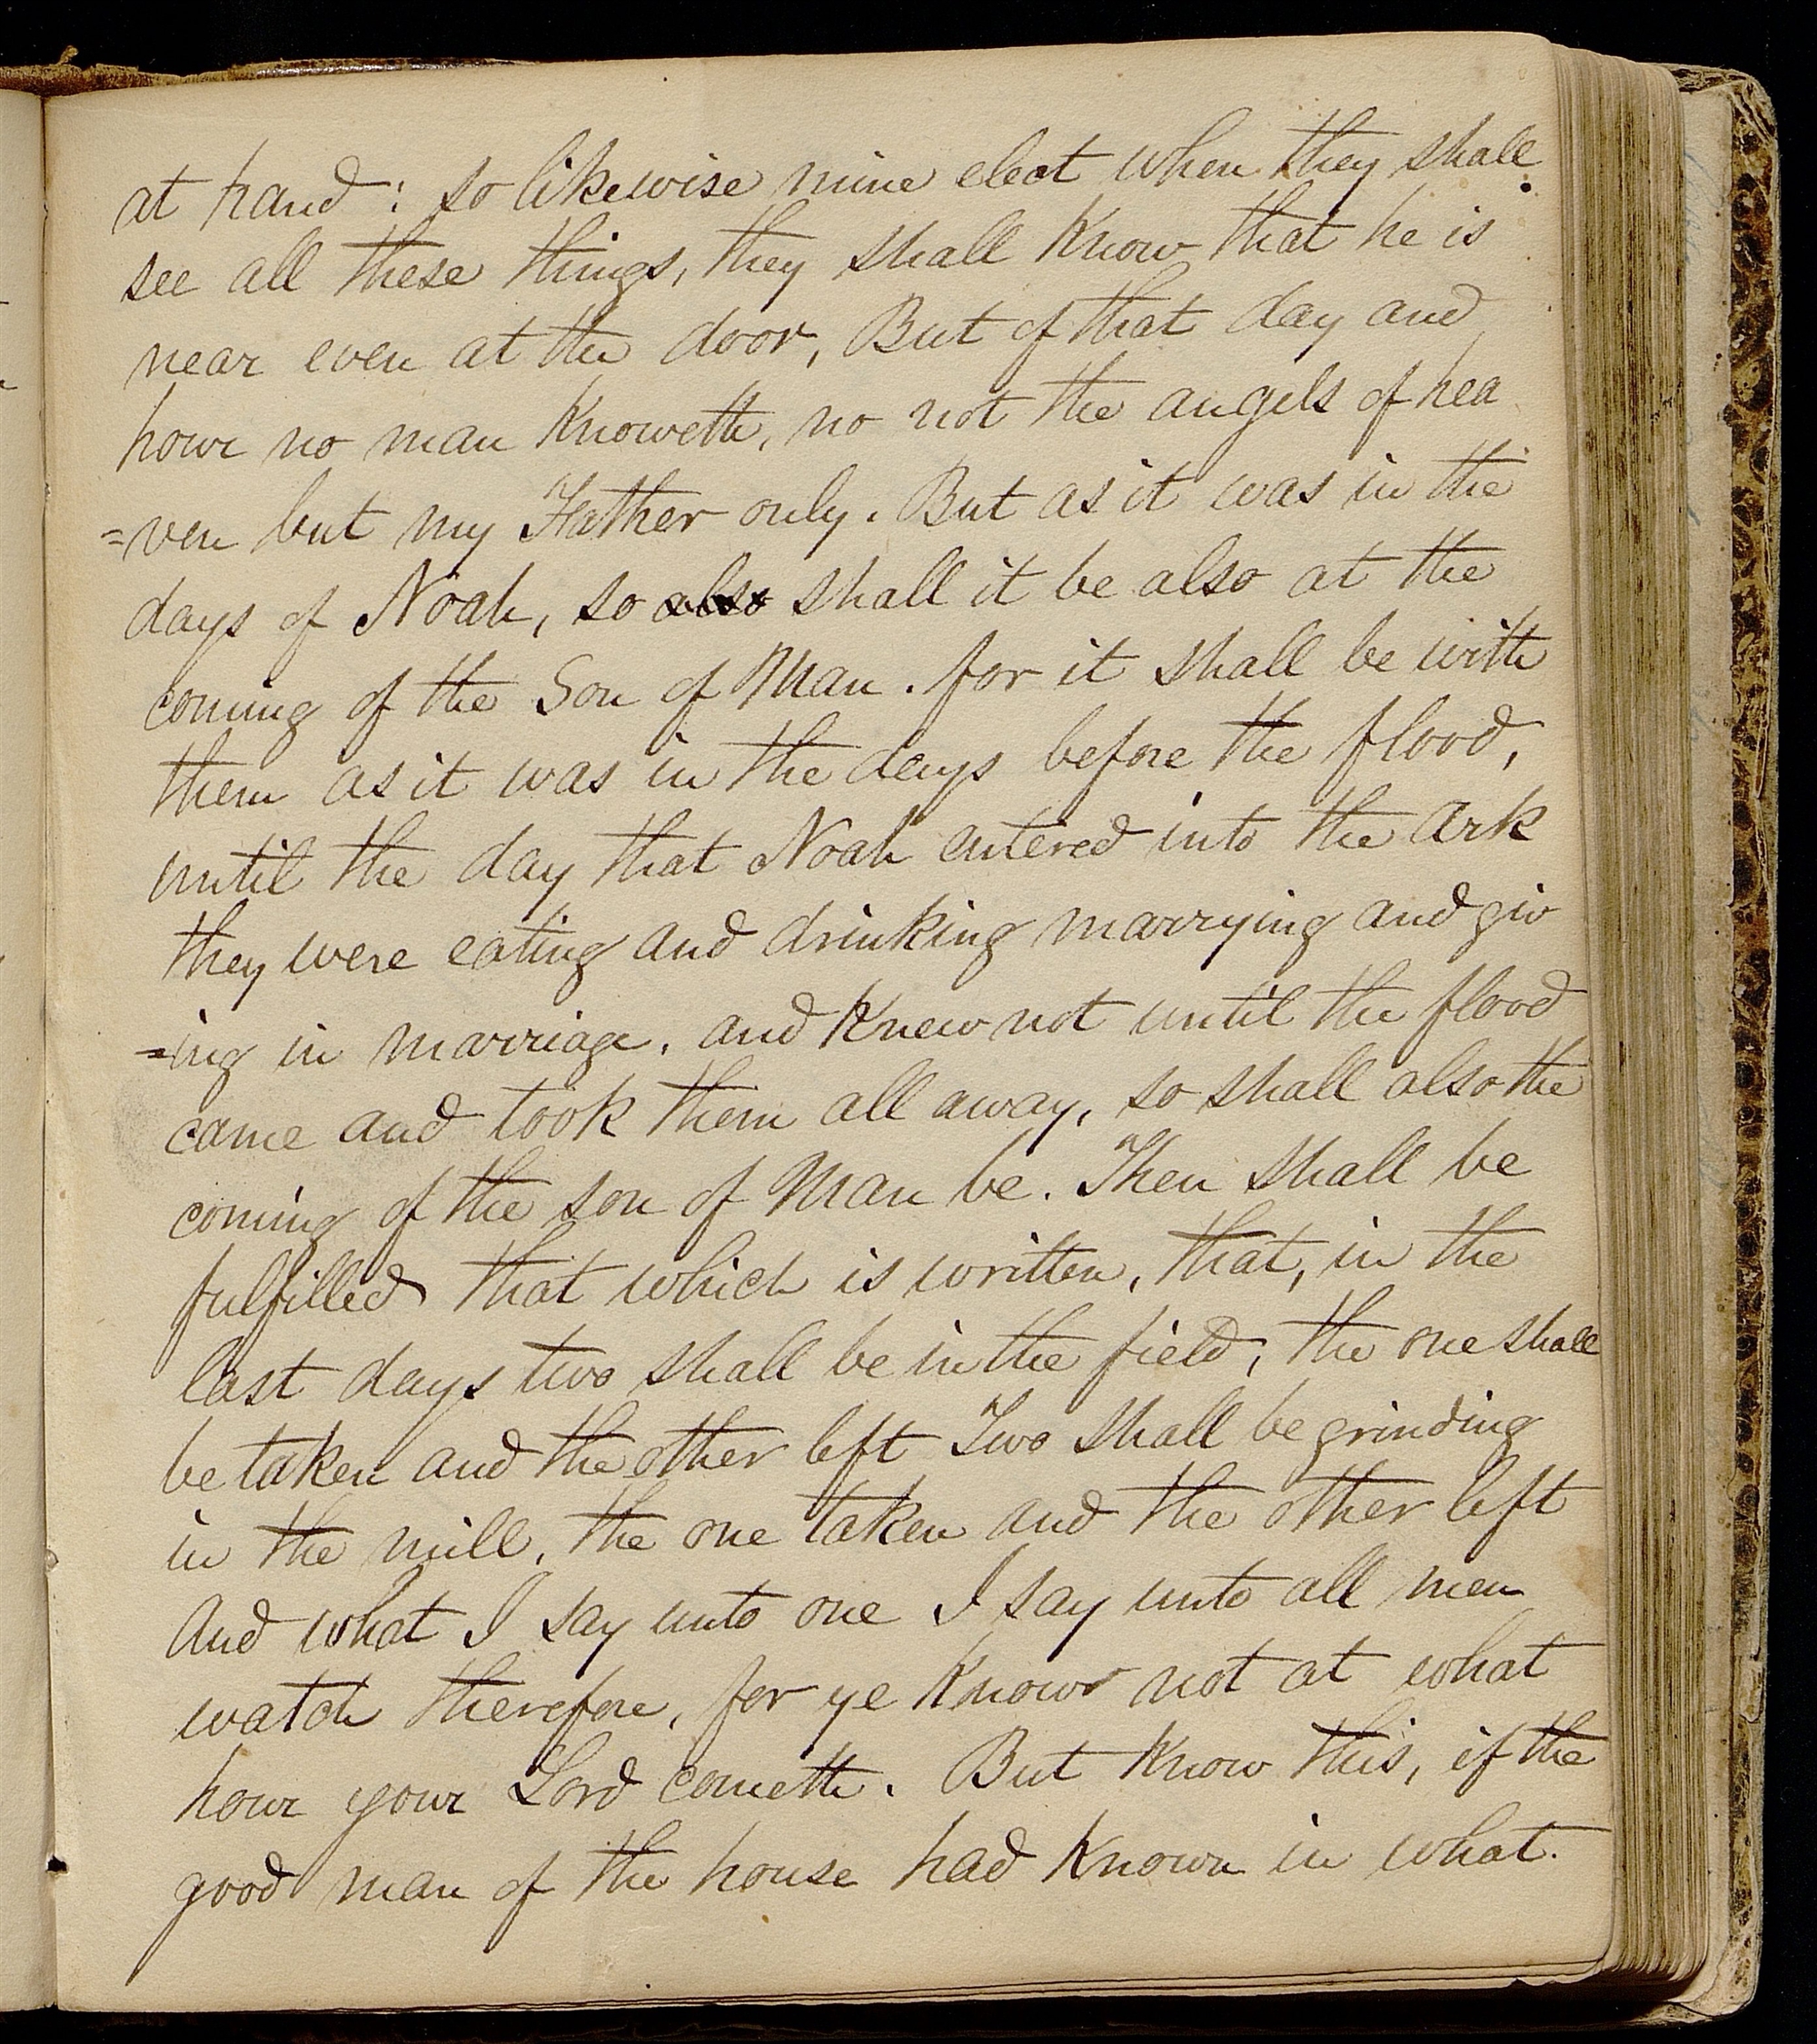 at hand: so likewise mine elect when they shall
see all these things, they shall know that he is
near even at the door, But of that day and
hour no man knoweth, no not the angels of hea
=ven but my Father only. But as it was in the
days of Noah, so also shall it be also at the
coming of the Son of Man. for it shall be with
them as it was in the days before the flood,
until the day that Noah entered into the ark
they were eating and drinking marrying and giv
=ing in marriage, and knew not until the flood
came and took them all away, so shall also the
coming of the son of Man be. Then shall be
fulfilled that which is written, that, in the
last days two shall be in the field, the one shall
be taken and the other left Two shall be grinding
in the mill, the one taken and the other left
And what I say unto one I say unto all men
watch therefore, for ye know not at what
hour your Lord cometh. But know this, if the
good man of the house had known in what.